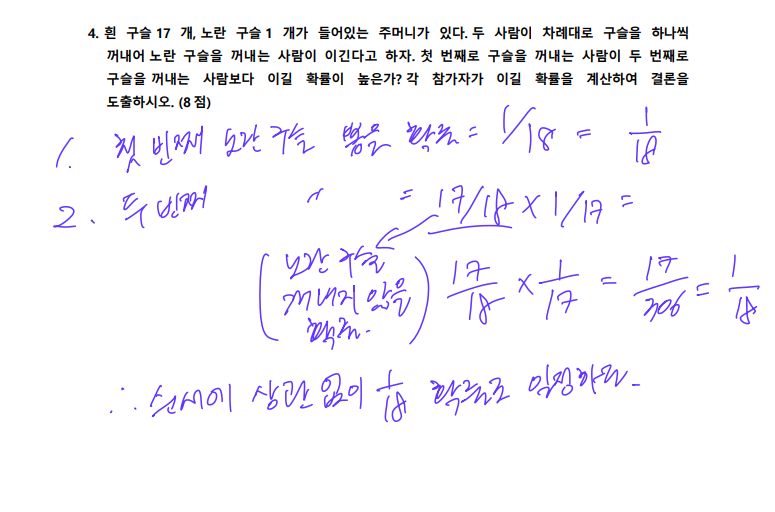 4. 흰 구슬 17 개, 노란 구슬 1 개가 들어있는 주머니가 있다. 두 사람이 차례대로 구슬을 하나씩
꺼내어 노란 구슬을 꺼내는 사람이 이긴다고 하자. 첫 번째로 구슬을 꺼내는 사람이 두 번째로
구슬을 꺼내는 사람보다 이길 확률이 높은가? 각 참가자가 이길 확률을 계산하여 결론을
도출하시오. (8 점)
1. 첫 번째 노란 구슬 뽑을 확률 = 1/18 = 1/18
2. 두 번째 〃 = 17/18 × 1/17 =
(노란 구슬
꺼내지 않을
확률.) 17/18 × 1/17 = 17/306 = 1/18
∴ 순서에 상관 없이 1/18 확률로 일정하다.